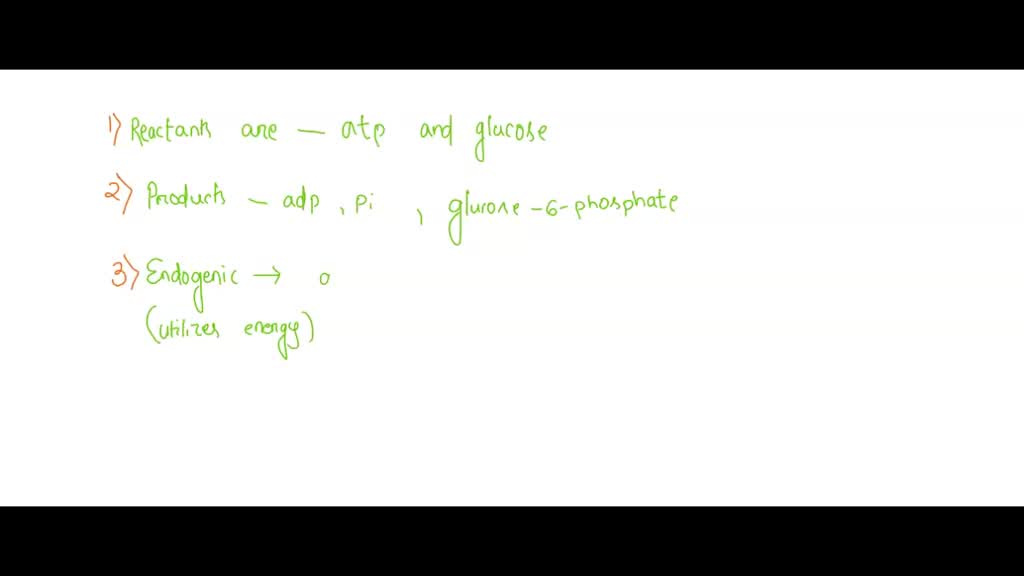 1) Reactants are — atp and glucose
2) Products — adp , Pi , glucose -6- phosphate
3) Endogenic → o
(utilizes energy)